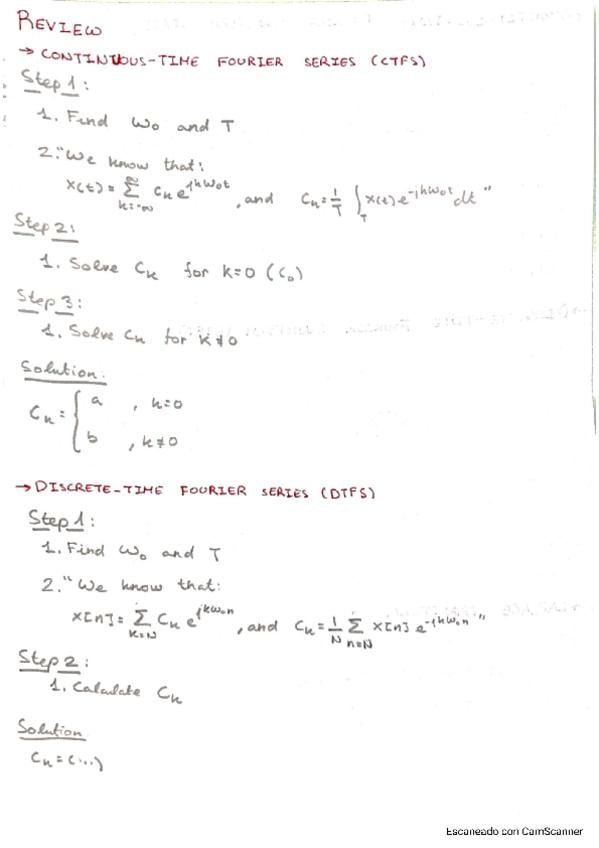 REVIEW
→ CONTINUOUS-TIME FOURIER SERIES (CTFS)
Step 1:
1. Find ω₀ and T
2. "We know that:
x(t) = ∑_{k=-∞}^{∞} C_k e^{jkω₀t}, and C_k = 1/T ∫_T x(t) e^{-jkω₀t} dt"
Step 2:
1. Solve C_k for k=0 (C₀)
Step 3:
1. Solve C_k for k≠0
Solution:
C_k = { a , k=0
b , k≠0
→ DISCRETE-TIME FOURIER SERIES (DTFS)
Step 1:
1. Find ω₀ and T
2. "We know that:
x[n] = ∑_{k=N} C_k e^{jkω₀n}, and C_k = 1/N ∑_{n=N} x[n] e^{-jkω₀n}"
Step 2:
1. Calculate C_k
Solution
C_k = (...)
Escaneado con CamScanner